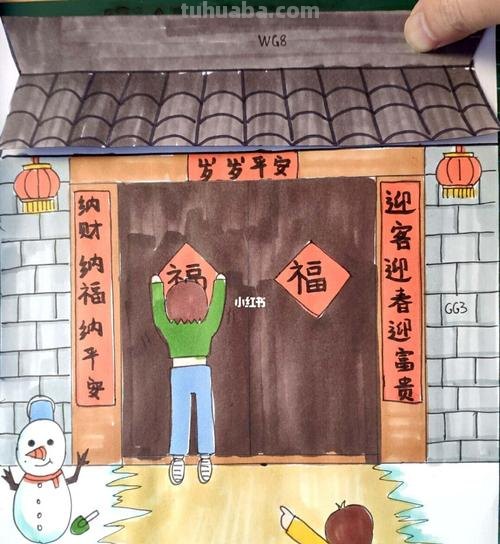 tuhuaba.com
WG8
岁岁平安
迎客迎春迎富贵
纳财纳福纳平安
福
福
小红书
GG3